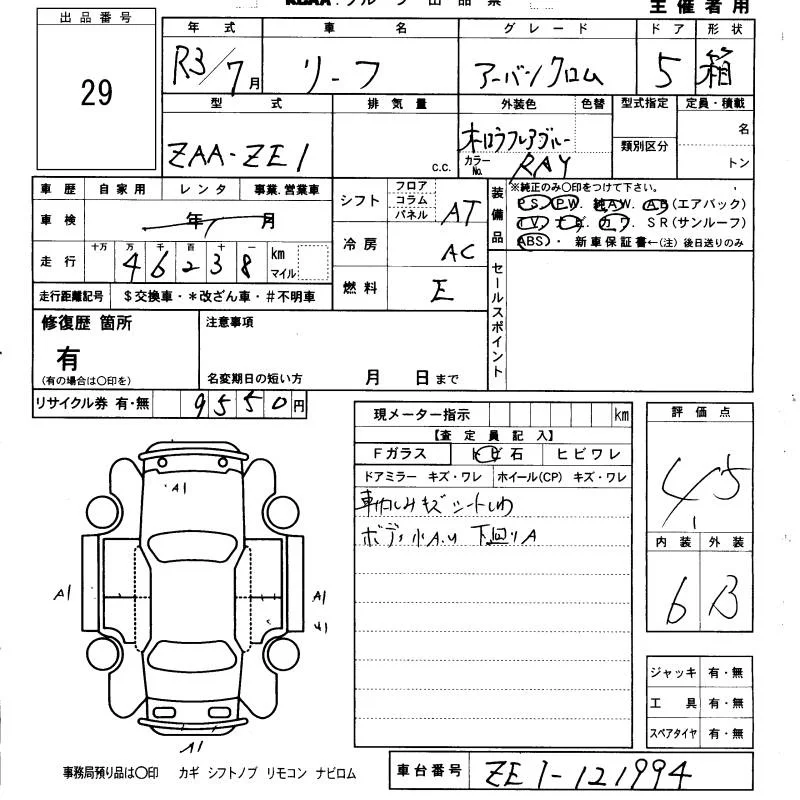 出品票
主催者用
出品番号
29
年式 車名 グレード ドア 形状
R3/7月 リーフ アーバンクロム 5 箱
型式 排気量 外装色 色替 型式指定 定員・積載
ZAA-ZE1 c.c. 類別区分 名
カラーNo. RAY トン
車歴 自家用 レンタ 事業.営業車
車検 年 月
走行 十万 万 千 百 十 一
46238 km マイル
走行距離記号 $交換車・*改ざん車・#不明車
シフト フロア コラム パネル AT
冷房 AC
燃料 E
装備品 ※純正のみ〇印をつけて下さい。
PS PW 純AW AB(エアバック)
TV ナビ カワ SR(サンルーフ)
ABS・新車保証書←(注)後日送りのみ
セールスポイント
修復歴 箇所 注意事項
有
(有の場合は〇印を) 名変期日の短い方 月 日まで
リサイクル券 有・無 9550円
現メーター指示 km
【査定員記入】
Fガラス トビ石 ヒビワレ
ドアミラー キズ・ワレ ホイール(CP) キズ・ワレ
シートしわ
ボディ小A.U 下回りA
評価点
4.5
内装 外装
6 B
ジャッキ 有・無
工具 有・無
スペアタイヤ 有・無
A1
A1 A1
A1
事務局預り品は〇印 カギ シフトノブ リモコン ナビロム
車台番号 ZE1-121994